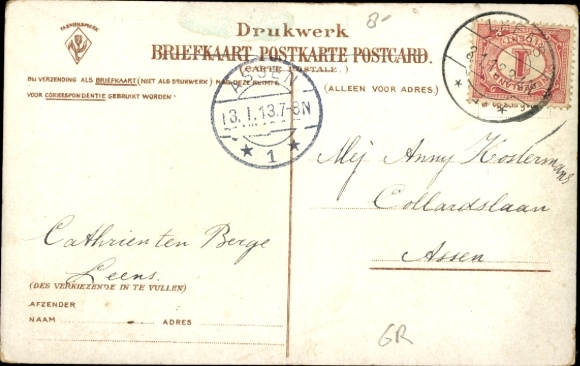 FABRIEKSMERK
8-
Drukwerk
BRIEFKAART. POSTKARTE POSTCARD.
(CARTE POSTALE.)
BIJ VERZENDING ALS BRIEFKAART (NIET ALS DRUKWERK) MAG DEZE RUIMTE
VOOR CORRESPONDENTIE GEBRUIKT WORDEN
(ALLEEN VOOR ADRES.)
ASSEN
3.1.13.7-8N
1
1
Mej Anny Kostermans
Collardslaan
Assen
Cathrien ten Berge
Leens.
(DES VERKIEZENDE IN TE VULLEN)
AFZENDER
NAAM ADRES
GR